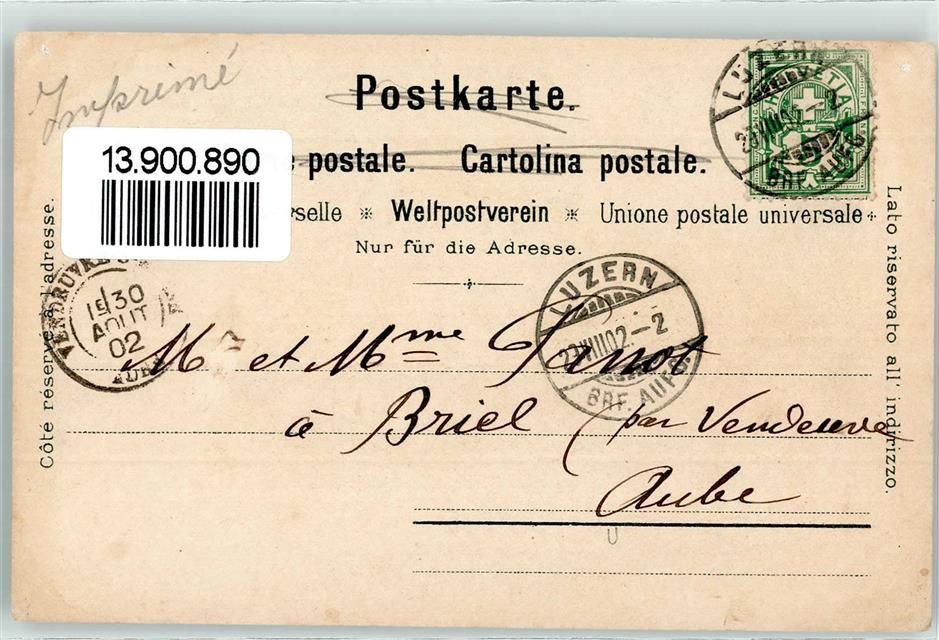 Imprimé
Postkarte.
13.900.890
e postale. Cartolina postale.
rselle ※ Weltpostverein ※ Unione postale universale
Nur für die Adresse.
Côté réservé à l'adresse.
Lato riservato all' indirizzo.
LUZERN
HELVETIA
BRF. AUFG.
LUZERN
29.VIII.02.-2
BRF. AUFG.
VENDEUVRE
1E/30
AOUT
02
AUBE
M et Mme
à Briel par Vendeuvre
Aube